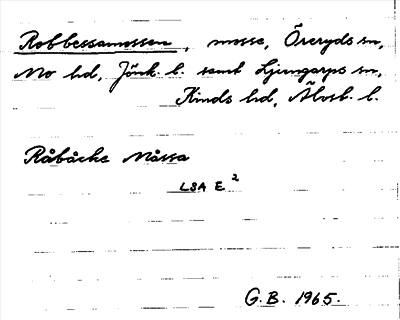 Robbessamossen, mosse, Öreryds sn,
Mo hd, Jönk. l. samt Ljungarps sn,
Kinds hd, Älvsb. l.
Råbäcke Måssa
LSA E²
G.B. 1965.